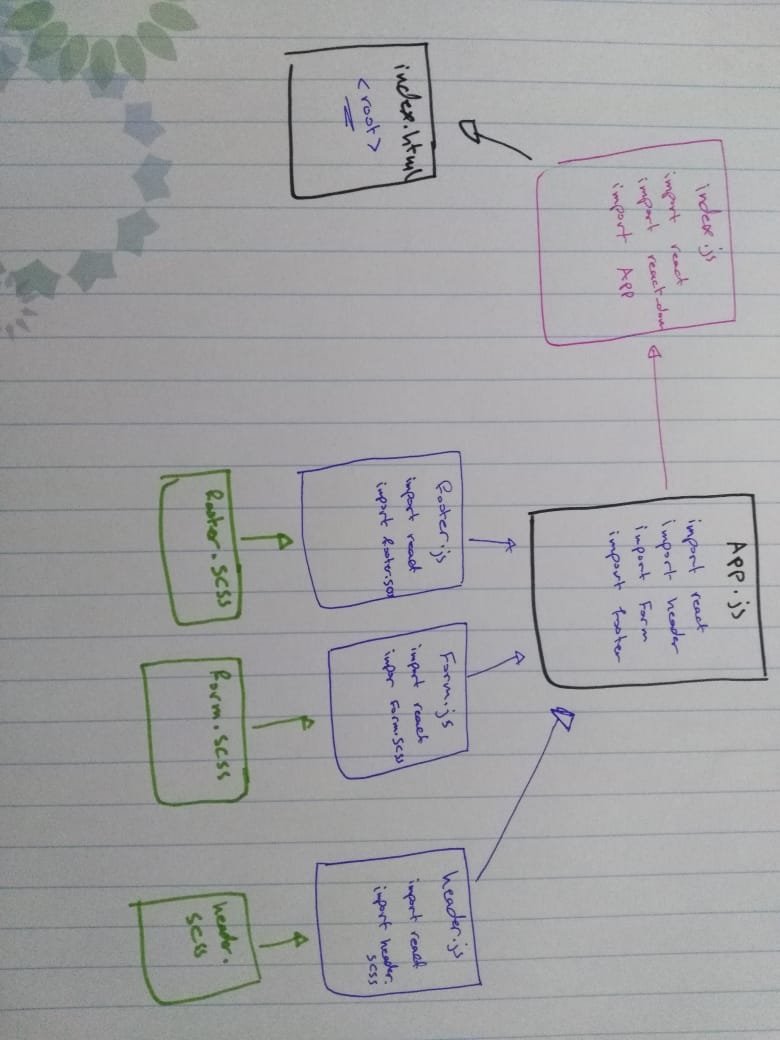 index.html
<root>
index.js
import react
import react-dom
import App
App.js
import react
import header
import Form
import footer
Footer.js
import react
import footer.scss
Form.js
import react
impor Form.scss
header.js
import react
import header.
scss
footer.scss
Form.scss
header.
scss